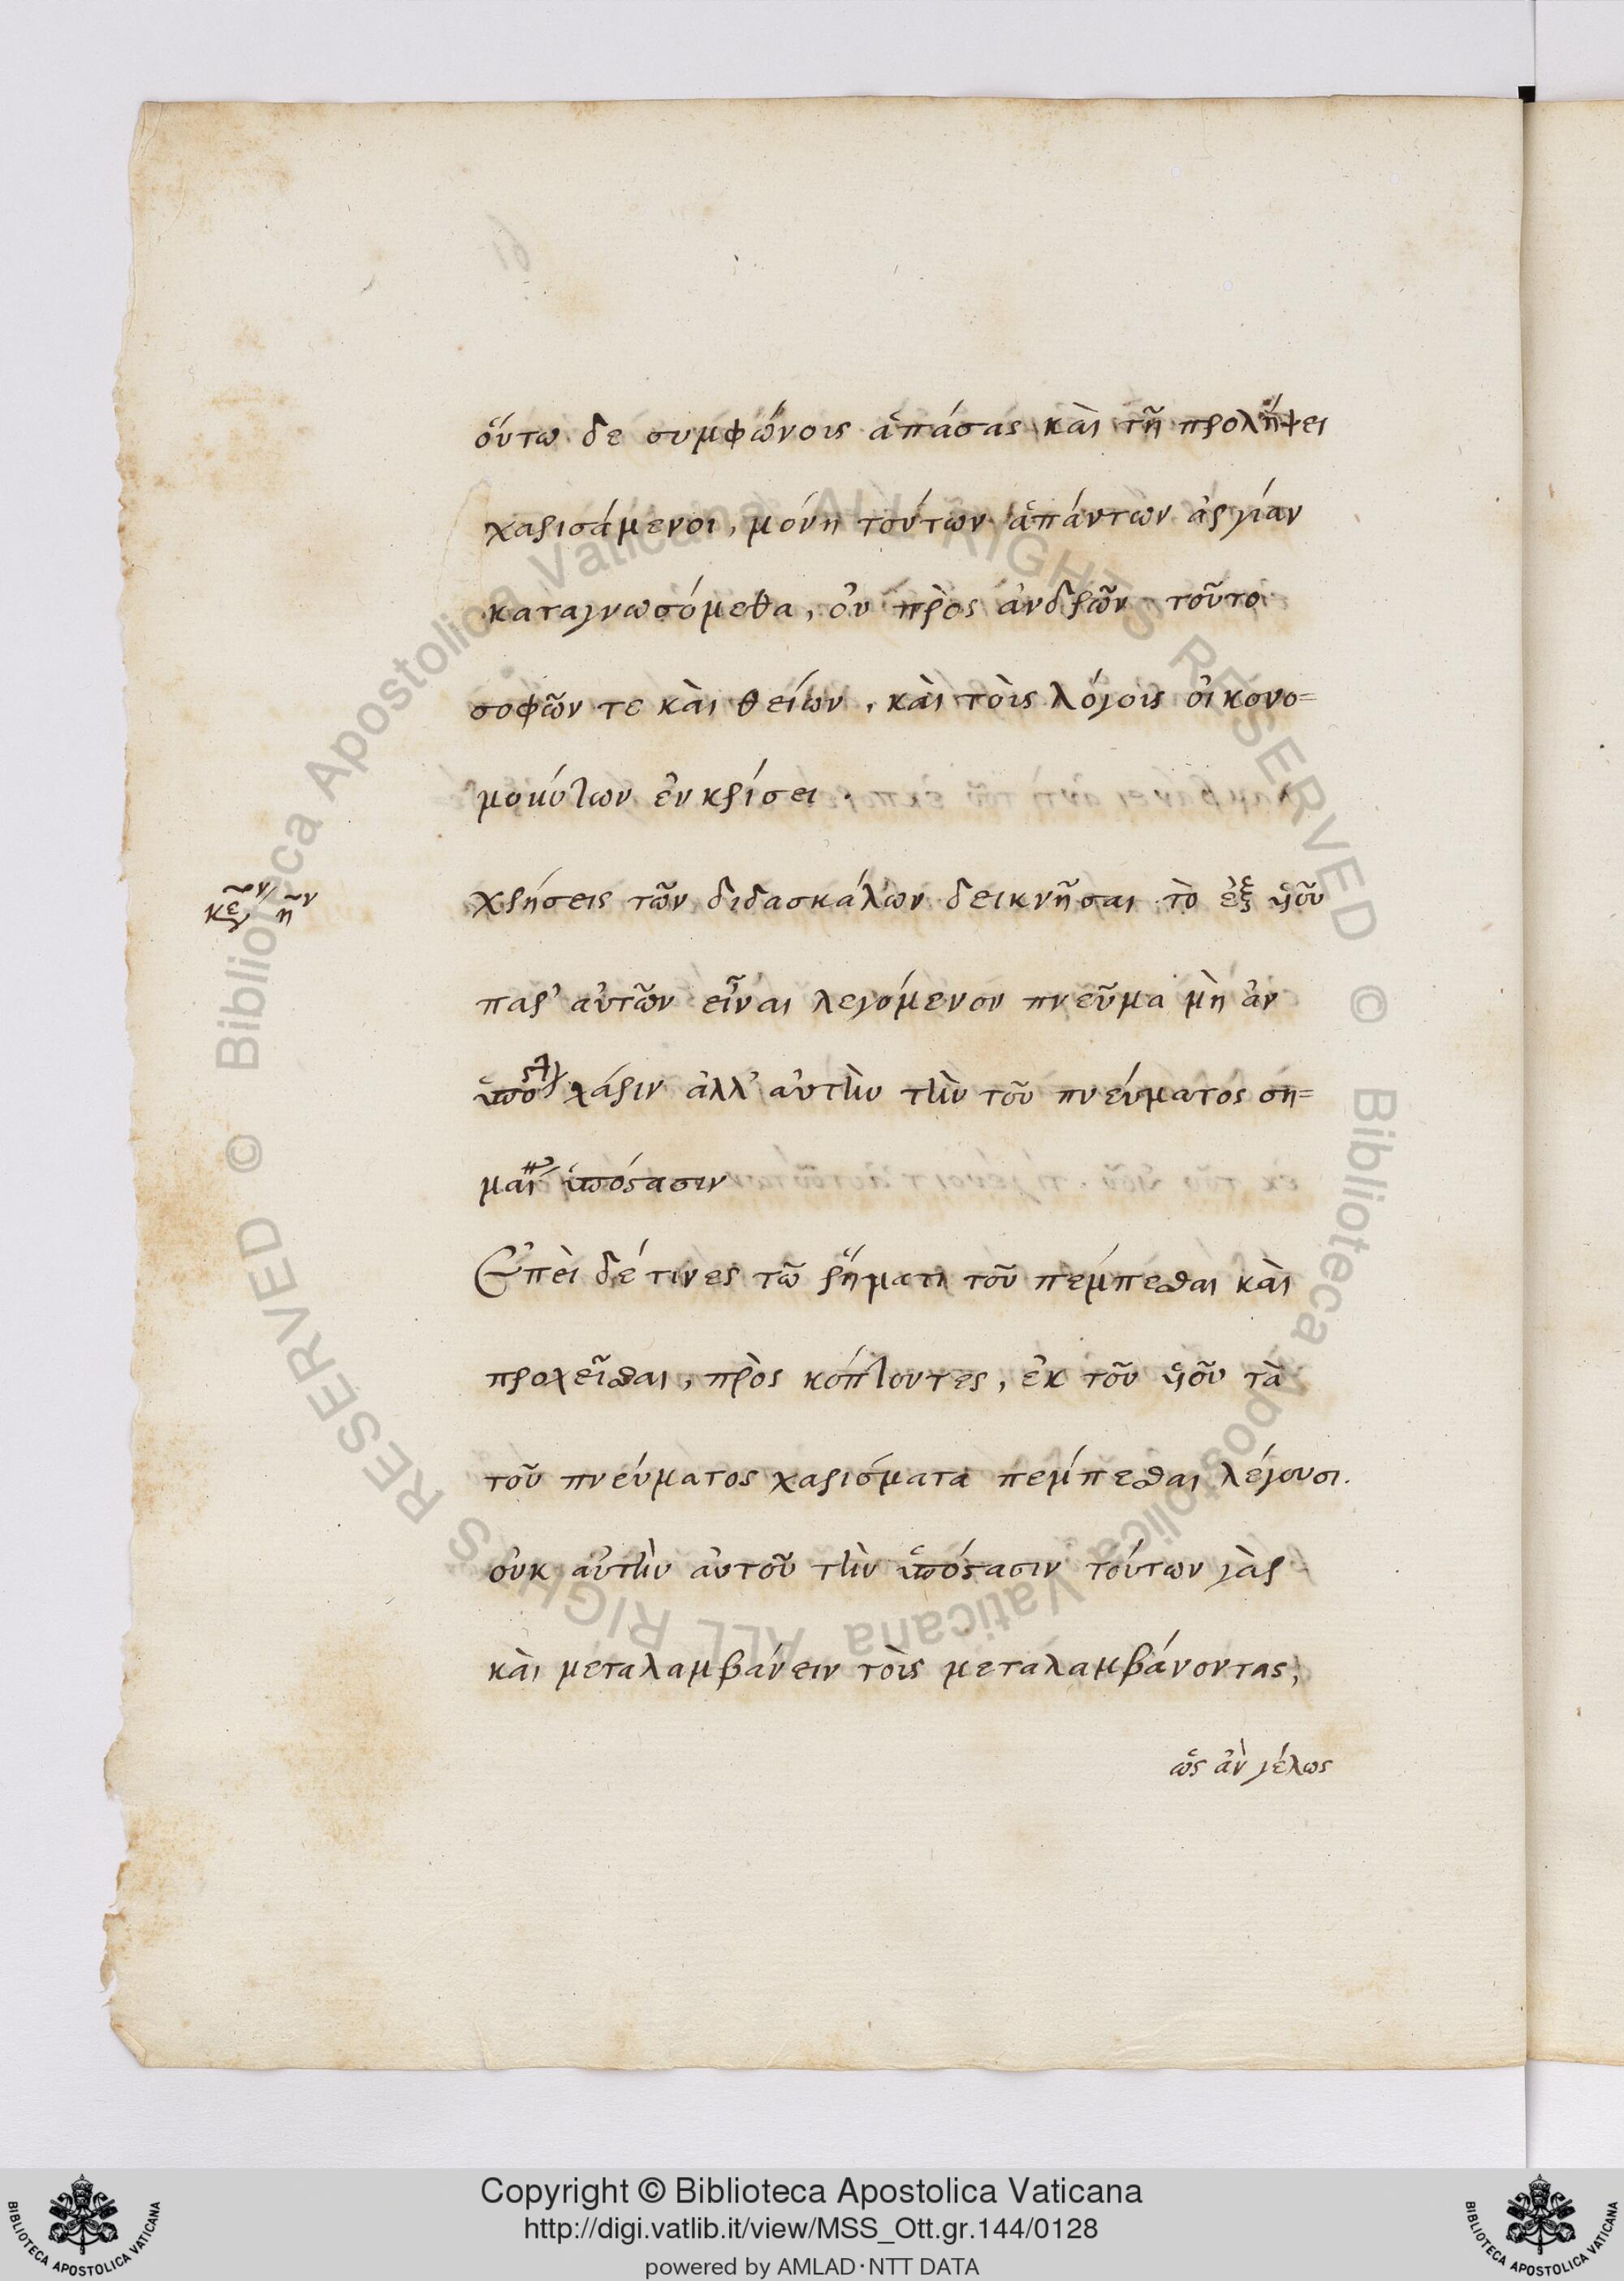 οὕτω δε συμφώνοις ἁπάσας καὶ τῆ προλήψει
χαρισάμενοι, μόνη τούτων ἁπάντων ἀργίαν
καταγνωσόμεθα, οὐ πρὸς ἀνδρῶν τοῦτο
σοφῶν τε καὶ θείων, καὶ τοῖς λόγοις οἰκονο=
μούντων ἐν κρίσει.
χρήσεις τῶν διδασκάλων δεικνῦσαι τὸ ἐξ υἱοῦ
παρ' αὐτῶν εἶναι λεγόμενον πνεῦμα μὴ ἀν
χάριν ἀλλ' αὐτὴν τὴν τοῦ πνεύματος ση=
μαι ὑπόστασιν
Ἐπεὶ δέ τινες τῶ ῥήματι τοῦ πέμπεσθαι καὶ
προχεῖσθαι, πρὸς κόπτοντες, ἐκ τοῦ υἱοῦ τὰ
τοῦ πνεύματος χαρίσματα πέμπεσθαι λέγουσι.
οὐκ αὐτὴν αὐτοῦ τὴν ὑπόστασιν τούτων γὰρ
καὶ μεταλαμβάνειν τοὶς μεταλαμβάνοντας,
ὡς ἀν γέλως
Copyright © Biblioteca Apostolica Vaticana
http://digi.vatlib.it/view/MSS_Ott.gr.144/0128
powered by AMLAD·NTT DATA
BIBLIOTECA APOSTOLICA VATICANA
BIBLIOTECA APOSTOLICA VATICANA
© Biblioteca Apostolica Vaticana ALL RIGHTS RESERVED
© Biblioteca Apostolica Vaticana ALL RIGHTS RESERVED